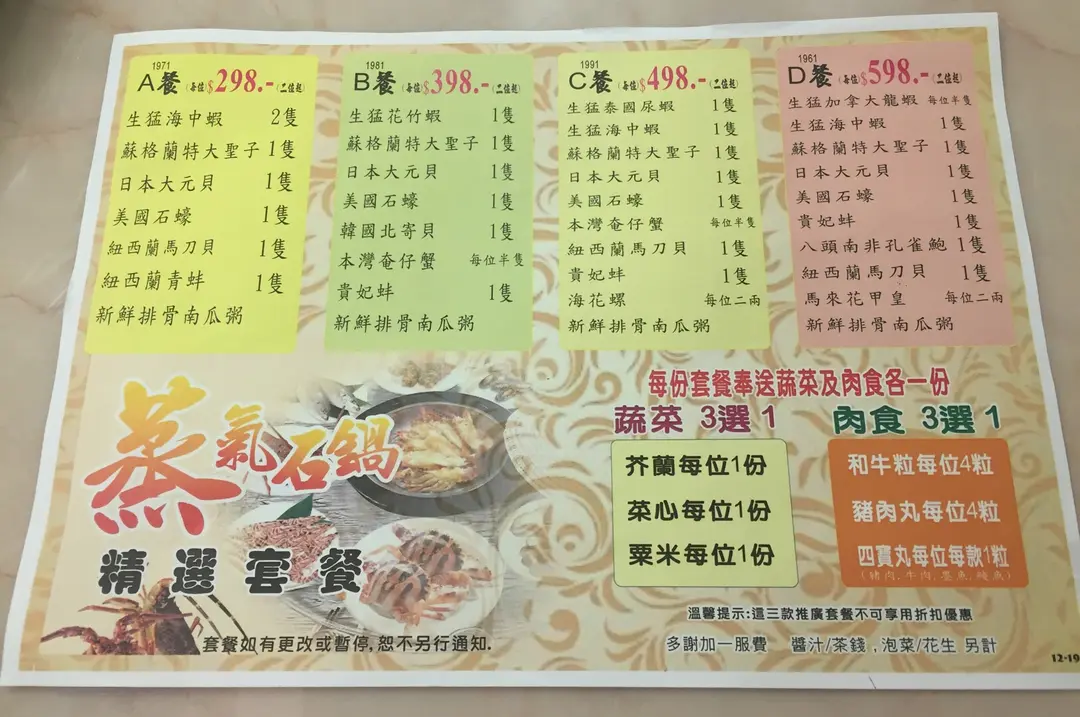 1971
A餐 (每位)$298.-(二位起)
生猛海中蝦 2隻
蘇格蘭特大聖子 1隻
日本大元貝 1隻
美國石蠔 1隻
紐西蘭馬刀貝 1隻
紐西蘭青蚌 1隻
新鮮排骨南瓜粥
1981
B餐 (每位)$398.-(二位起)
生猛花竹蝦 1隻
蘇格蘭特大聖子 1隻
日本大元貝 1隻
美國石蠔 1隻
韓國北寄貝 1隻
本灣奄仔蟹 每位半隻
貴妃蚌 1隻
新鮮排骨南瓜粥
1991
C餐 (每位)$498.-(二位起)
生猛泰國尿蝦 1隻
生猛海中蝦 1隻
蘇格蘭特大聖子 1隻
日本大元貝 1隻
美國石蠔 1隻
本灣奄仔蟹 每位半隻
紐西蘭馬刀貝 1隻
貴妃蚌 1隻
海花螺 每位二兩
新鮮排骨南瓜粥
1961
D餐 (每位)$598.-(二位起)
生猛加拿大龍蝦 每位半隻
生猛海中蝦 1隻
蘇格蘭特大聖子 1隻
日本大元貝 1隻
美國石蠔 1隻
貴妃蚌 1隻
八頭南非孔雀鮑 1隻
紐西蘭馬刀貝 1隻
馬來花甲皇 每位二兩
新鮮排骨南瓜粥
蒸氣石鍋
精選套餐
套餐如有更改或暫停,恕不另行通知.
每份套餐奉送蔬菜及肉食各一份
蔬菜 3選1
芥蘭每位1份
菜心每位1份
粟米每位1份
肉食 3選1
和牛粒每位4粒
豬肉丸每位4粒
四寶丸每位每款1粒
(豬肉,牛肉,墨魚,鯪魚)
溫馨提示:這三款推廣套餐不可享用折扣優惠
多謝加一服費 醬汁/茶錢,泡菜/花生 另計
12-19